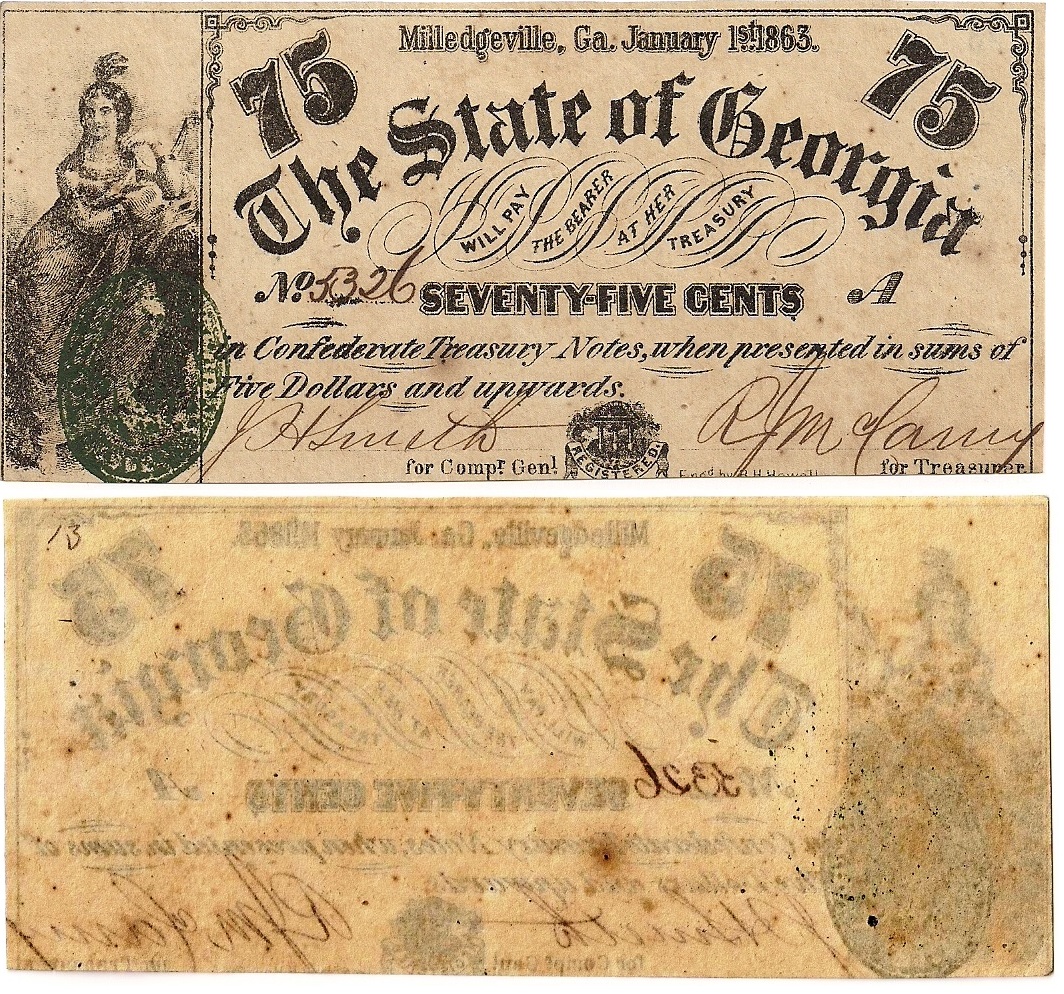 Milledgeville, Ga. January 1st 1863.
75
75
The State of Georgia
WILL PAY THE BEARER AT HER TREASURY
No. 5326 SEVENTY-FIVE CENTS A
in Confederate Treasury Notes, when presented in sums of
Five Dollars and upwards.
J H Smith
for Compr. Genl.
REGISTERED
Engd by R.H. Howell
for Treasurer
13